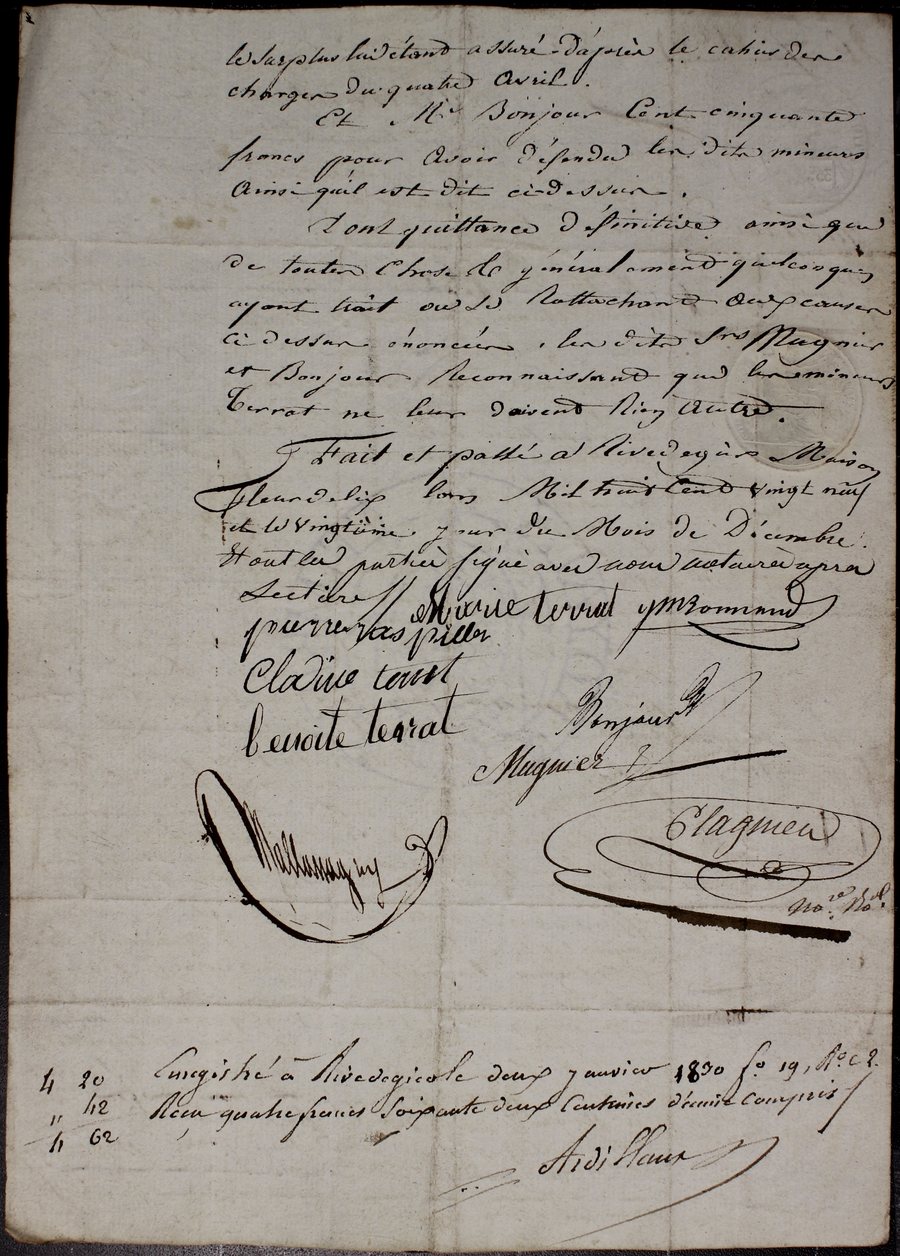 le surplus lui étant assuré d'après le cahier des
charges du quatre avril.
Et Me Bonjour Cent cinquante
francs pour avoir défendu les dits mineurs
ainsi qu'il est dit ci-dessus.
Dont quittance définitive ainsi que
de toutes Choses généralement quelconques
ayant trait ou se Rattachant aux causes
ci dessus énoncées, les dits Srs Magnier
et Bonjour Reconnaissant que les mineurs
Terrat ne leur doivent Rien autre.
Fait et passé à Rivedegier Maison
fleurdelix l'an Mil huit Cent vingt neuf
et le vingtième jour du Mois de Décembre.
Et ont les parties signé avec nous notaire après
Lecture
Marie terrat
pierre
Cladive terrat
benoite terrat
Bonjour
Magnier
Plagnieu
Nore Roal
Enregistré à Rivedegier le deux janvier 1830 fo 19, Ro c 2.
4 20
Reçu quatre francs Soixante deux Centimes décime compris
" 42
4 62
Ardillaux